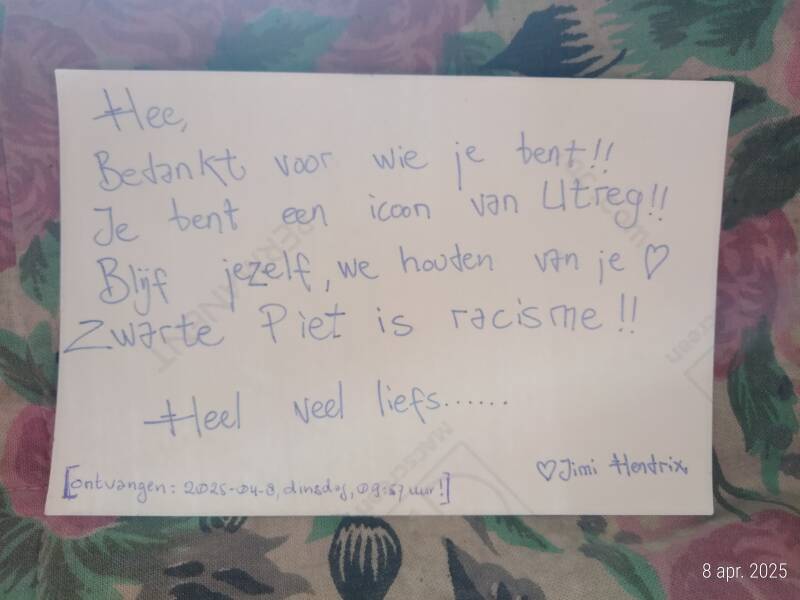 Hee,
Bedankt voor wie je bent!!
Je bent een icoon van Utreg!!
Blijf jezelf, we houden van je ♡
Zwarte Piet is racisme!!
Heel veel liefs......
♡Jimi Hendrix
[ontvangen: 2025-04-8, dinsdag, 09:57 uur!]
8 apr. 2025